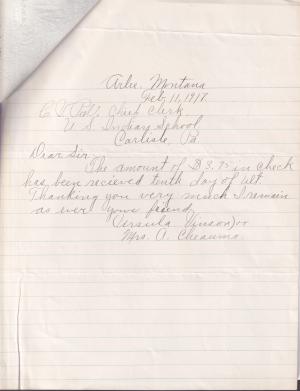 Arlee, Montana
Feb 11, 1917.
Chief Clerk
U. S. Indian School
Carlisle, Pa
Dear Sir:
The amount of $3.75 in check
has been recieved tenth day of ult.
Thanking you very much I remain
as ever your friend,
(Ursula Vinson) or
Mrs. A. Cheauma.